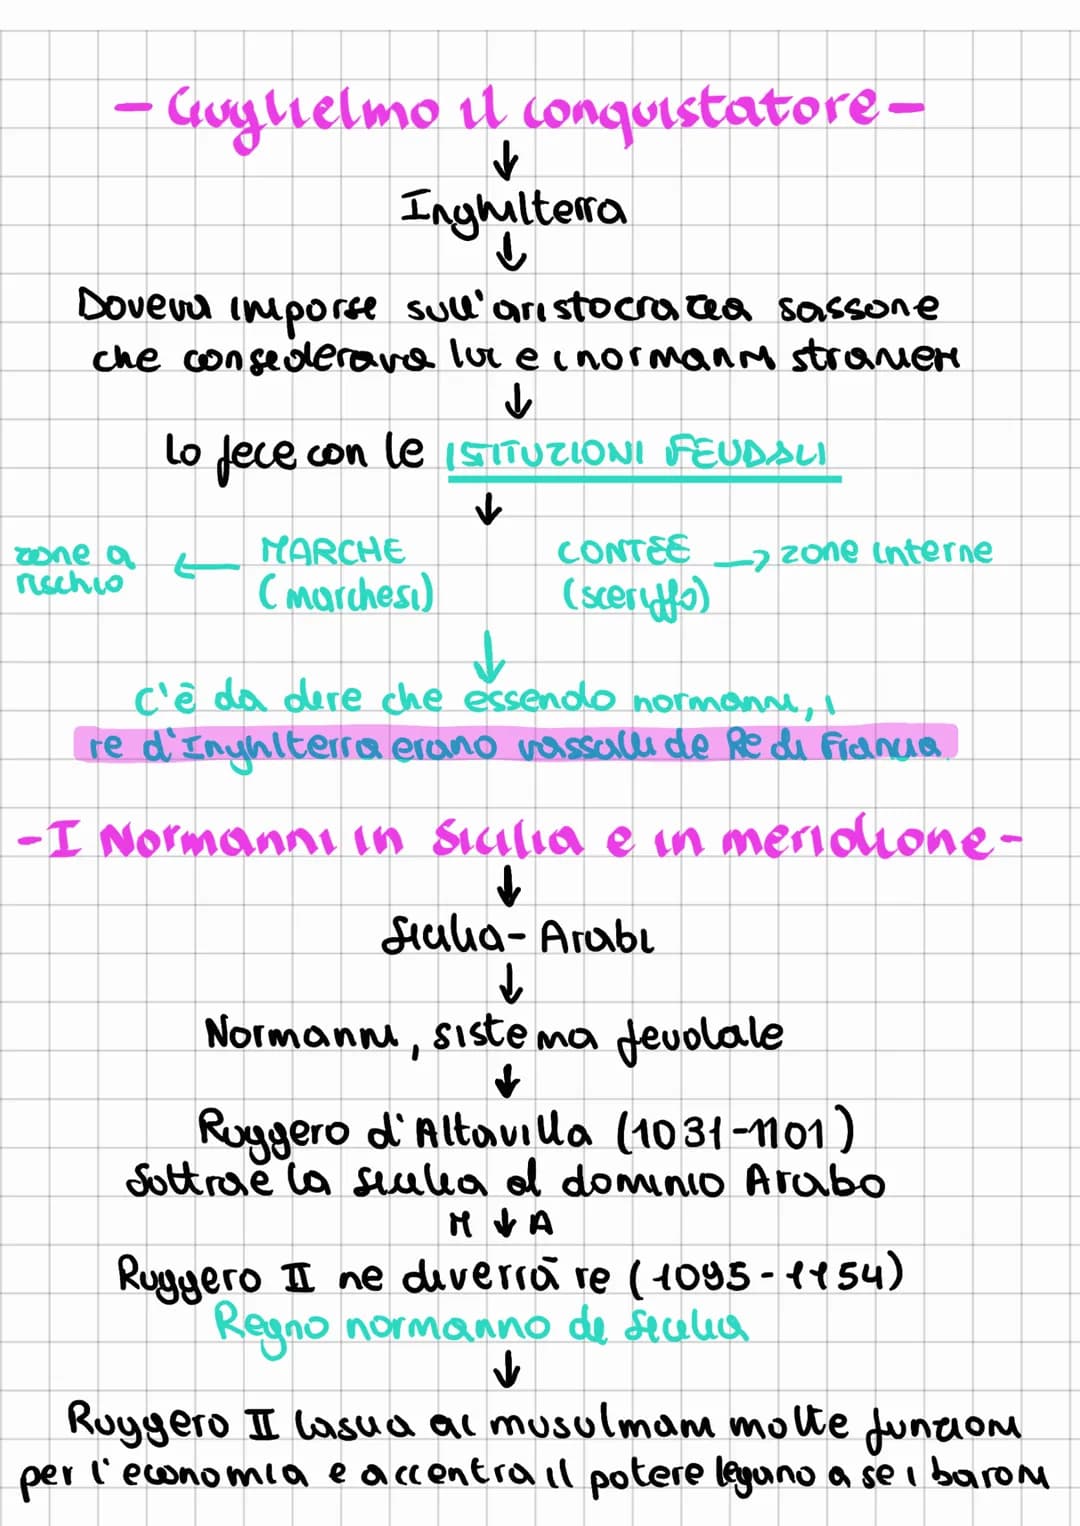 - Guglielmo il conquistatore -
↓
Inghilterra
↓
Doveva imporsi sull'aristocrazia sassone
che considerava lui e i normanni stranieri
↓
lo fece con le ISTITUZIONI FEUDALI
↓
zone a rischio ← MARCHE (marchesi)
CONTEE (sceriffo) → zone interne
↓
C'è da dire che essendo normanni, i
re d'Inghilterra erano vassalli del Re di Francia
- I Normanni in Sicilia e in meridione -
↓
Sicilia - Arabi
↓
Normanni, sistema feudale
↓
Ruggero d'Altavilla (1031-1101)
Sottrae la Sicilia al dominio Arabo
M ↓ A
Ruggero II ne diverrà re (1095-1154)
Regno normanno di Sicilia
↓
Ruggero II lascia ai musulmani molte funzioni
per l'economia e accentra il potere legano a se i baroni